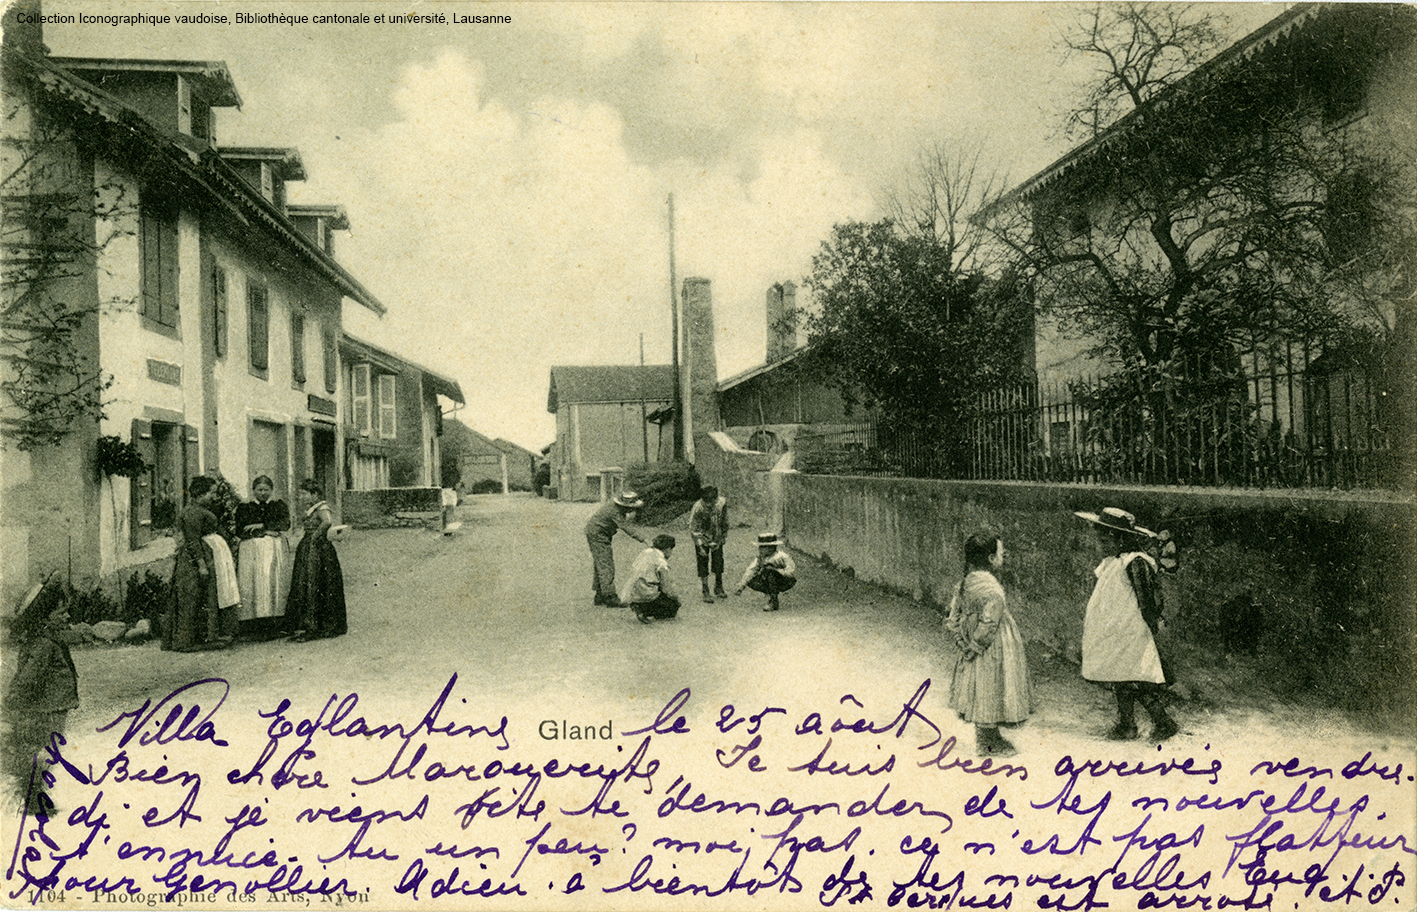 Collection Iconographique vaudoise, Bibliothèque cantonale et université, Lausanne
Villa Eglantine Gland le 25 août
Bien chère Marguerite, Je suis bien arrivée vendre-
di et je viens vite te demander de tes nouvelles.
t'ennuie-tu un peu? moi, pas. ce n'est pas flatteur
pour Genollier. Adieu. à bientôt de tes nouvelles Eug
est arrosé.
1104 - Photographie des Arts, Nyon